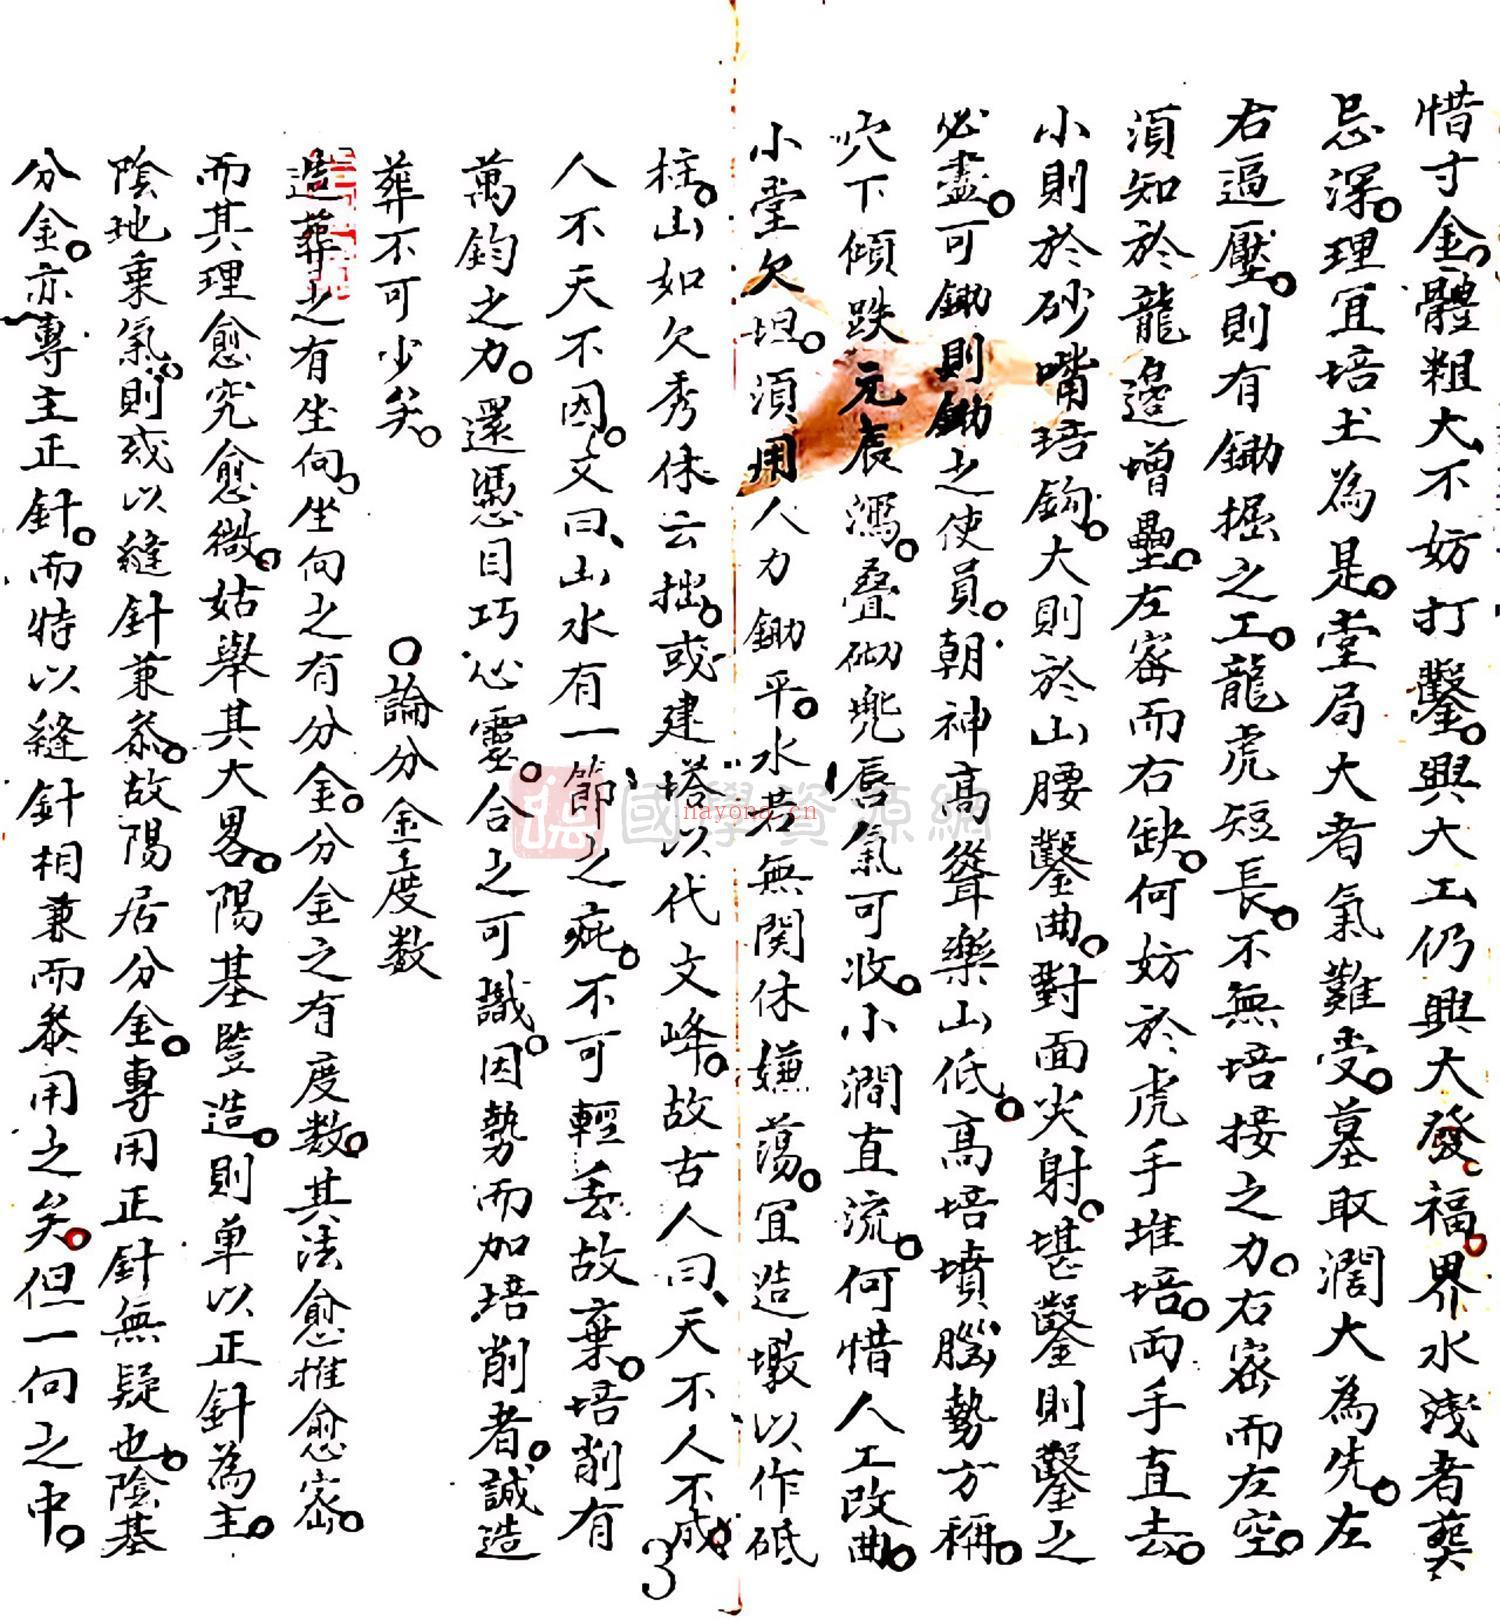 惜寸金。體粗大、不妨打鑿。興大工仍興大發。福。界水淺者葬
忌深。理宜培土為是。堂局大者氣難受。墓取濶大為先。左
右逼壓。則有鋤掘之工。龍虎短長。不無培接之力。右密而左空。
須知於龍邊增壘。左密而右缺。何妨於虎手堆培。両手直去。
小則於砂嘴培鉤。大則於山腰鑿曲。對面尖射。堪鑿則鑿之
必盡。可鋤則鋤之使員。朝神高聳。樂山低。高培墳腦勢方稱。
穴下傾跌元辰瀉。叠砌兠唇氣可收。小澗直流。何惜人工改曲。
小堂欠坦。須用人力鋤平。水若無関休嫌蕩。宜造墩以作砥
柱。山如欠秀休云拙。或建塔以代文峰。故古人曰、天不人不成
人不天不因。文曰、山水有一節之疵。不可輕丢故棄。培削有
萬鈞之力。還憑目巧心靈。合之可識。因勢而加培削者。誠造
葬不可少矣。
○論分金度数
造葬之有坐向。坐向之有分金。分金之有度数。其法愈推愈密。
而其理愈究愈微。姑舉其大畧。陽基豎造。則单以正針為主。
陰地乗氣。則或以縫針兼叅。故陽居分金。專用正針無疑也。陰基
分金。亦專主正針。而特以縫針相兼而叅用之矣。但一向之中。
3
國學資源網
nayona.cn